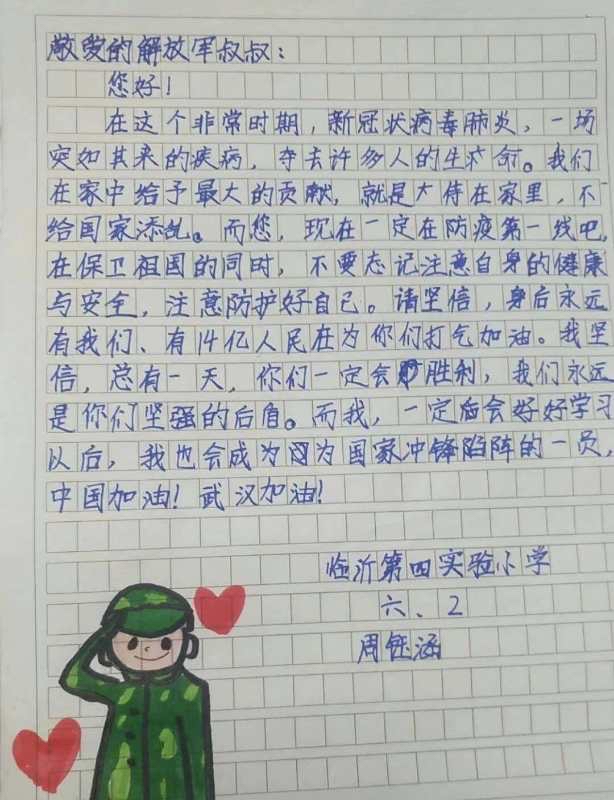 敬爱的解放军叔叔：
您好！
在这个非常时期，新冠状病毒肺炎，一场
突如其来的疾病，夺去许多人的生命。我们
在家中给予最大的贡献，就是大待在家里，不
给国家添乱。而您，现在一定在防疫第一线吧，
在保卫祖国的同时，不要忘记注意自身的健康
与安全，注意防护好自己。请坚信，身后永远
有我们、有14亿人民在为你们打气加油。我坚
信，总有一天，你们一定会胜利，我们永远
是你们坚强的后盾。而我，一定后会好好学习
以后，我也会成为为国家冲锋陷阵的一员，
中国加油！武汉加油！
临沂第四实验小学
六、2
周钰涵